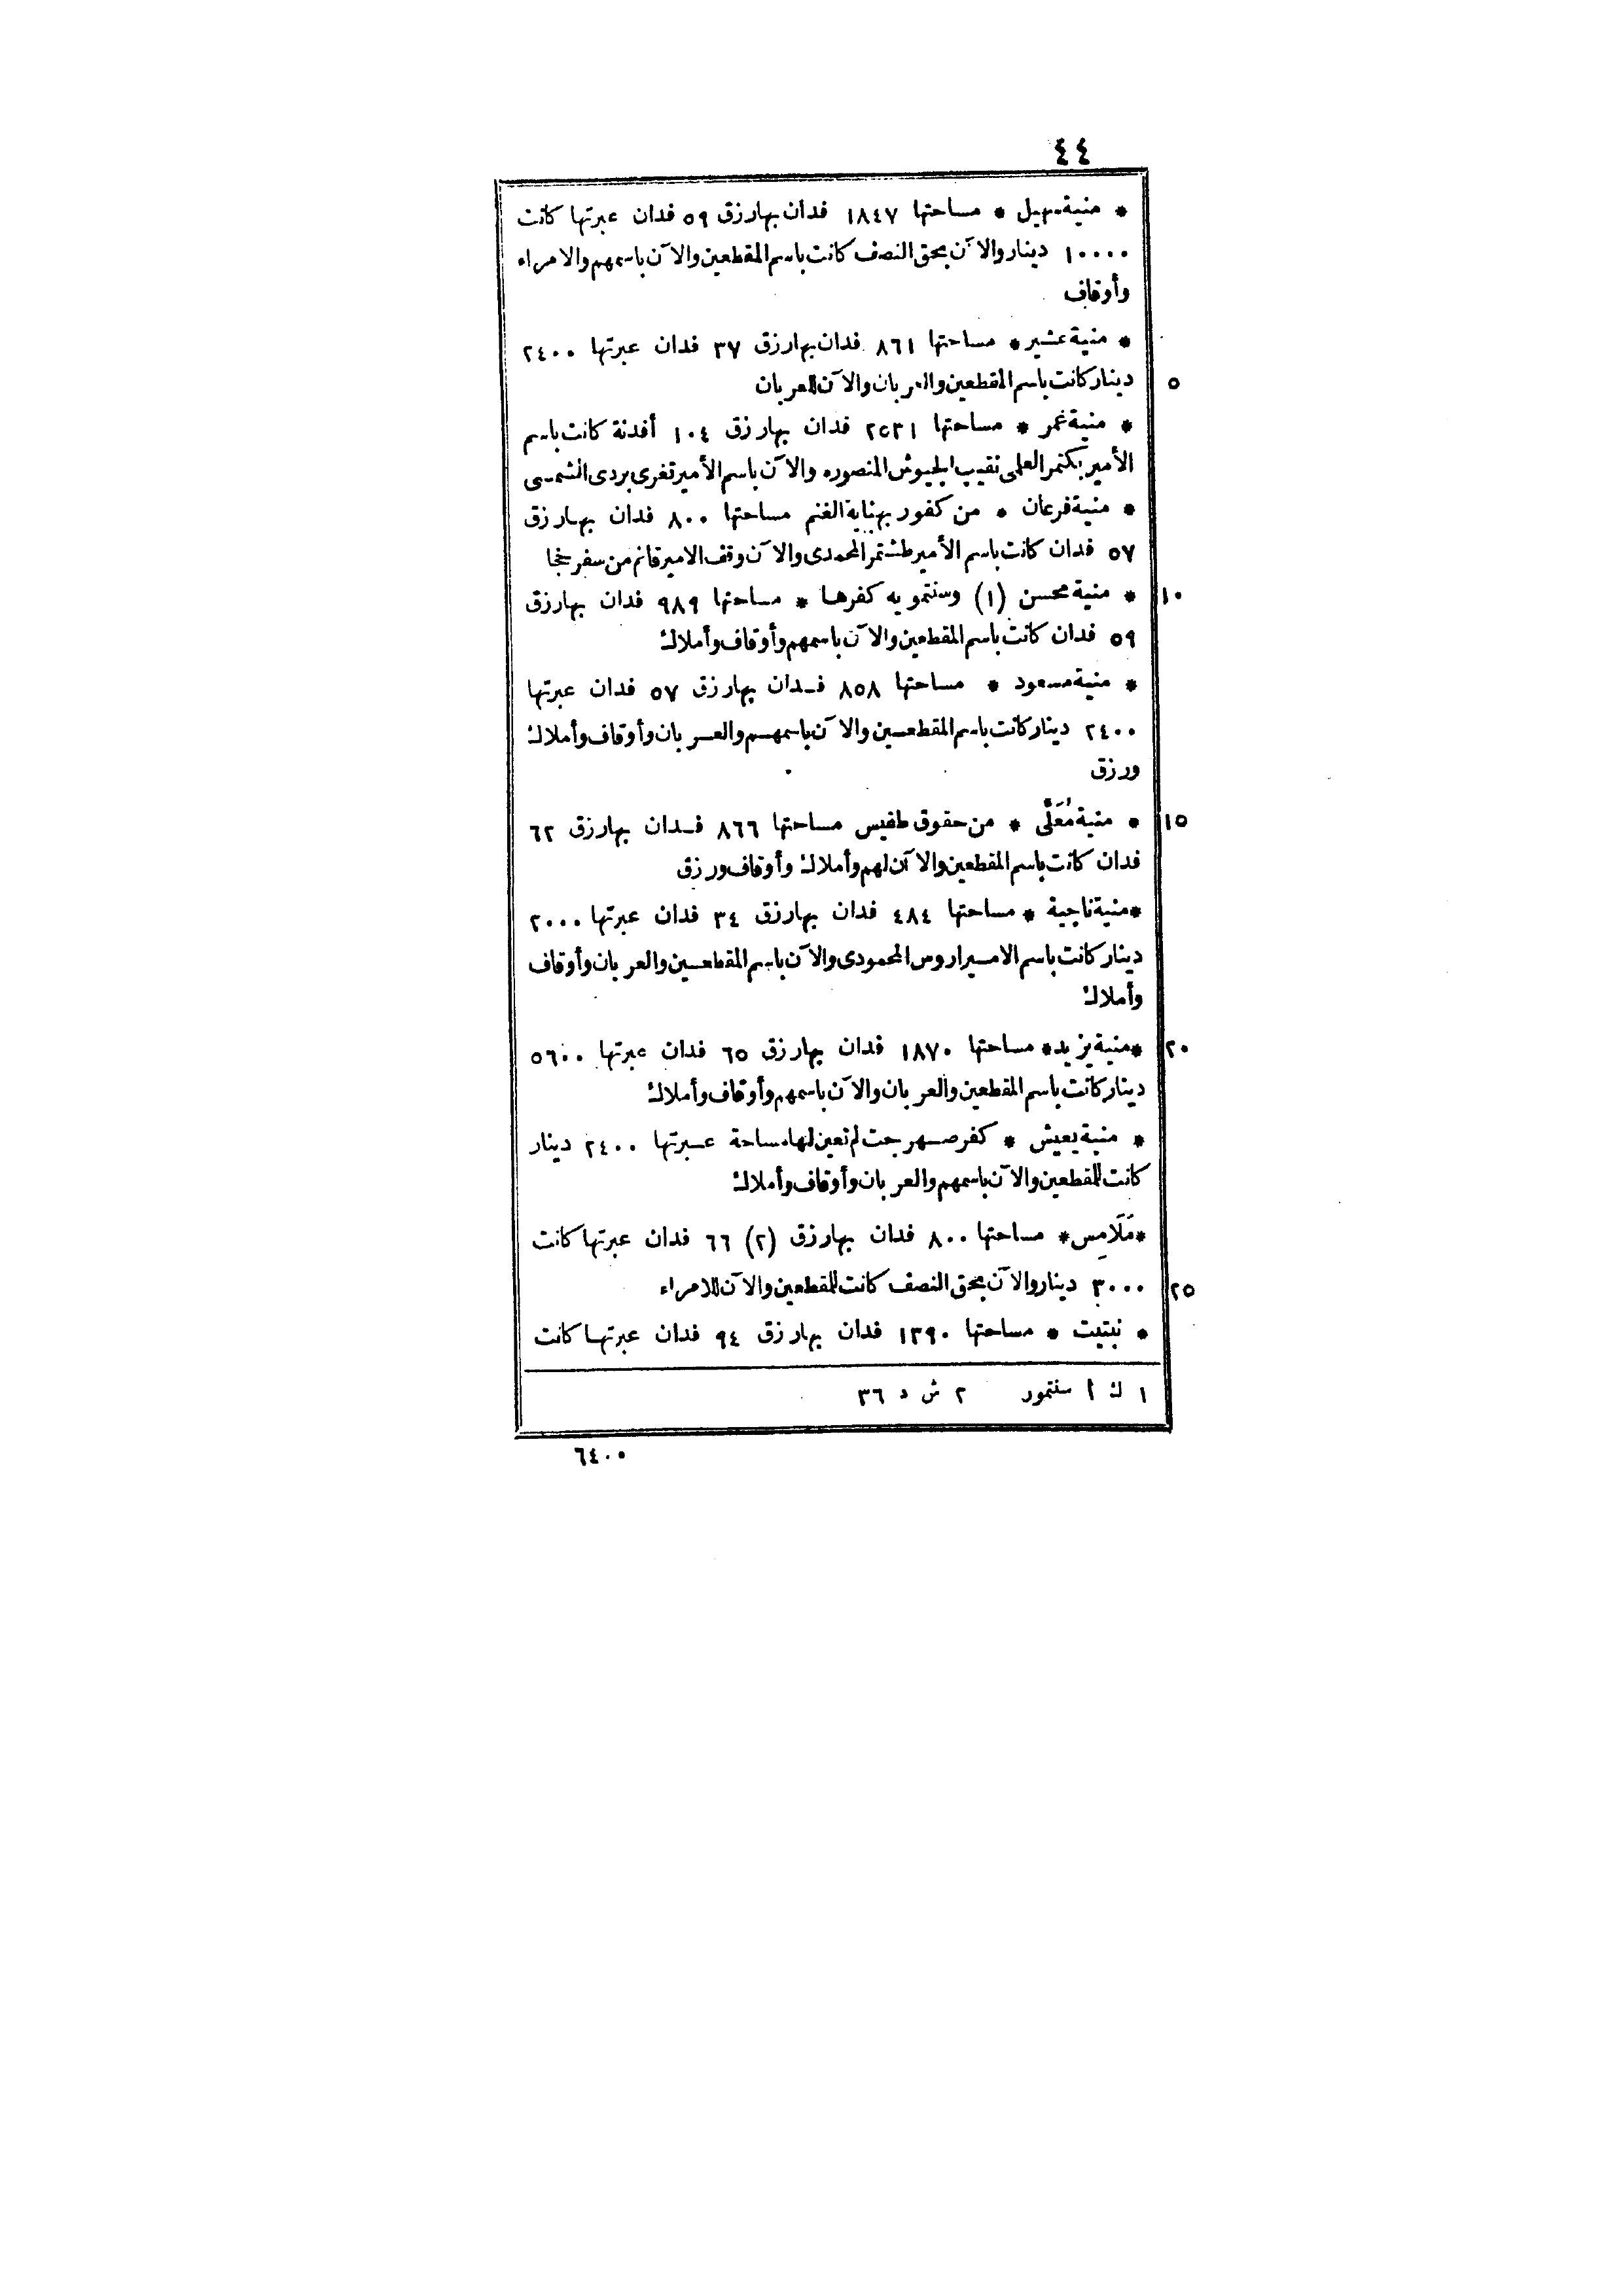 ٤٤
* منية سهيل * مساحتها ١٨٤٧ فدان بها رزق ٥٩ فدان عبرتها كانت
١٠٠٠٠ دينار والآن بحق النصف كانت باسم المقطعين والآن باسمهم والامراء
وأوقاف
* منية عشير * مساحتها ٨٦١ فدان بها رزق ٣٧ فدان عبرتها ٢٤٠٠
٥ دينار كانت باسم المقطعين والعربان والآن للعربان
* منية غمر * مساحتها ٢٥٣١ فدان بها رزق ١٠٤ أفدنة كانت باسم
الأمير بكتمر العلمى نقيب الجيوش المنصوره والآن باسم الأمير تغرى بردى الشمسى
* منية فرعان * من كفور بهناية الغنم مساحتها ٨٠٠ فدان بها رزق
٥٧ فدان كانت باسم الأمير طشتمر المحمدى والآن وقف الامير قانم من سفر خجا
١٠ * منية محسن (١) وسنتمويه كفرها * مساحتها ٩٨٩ فدان بها رزق
٥٩ فدان كانت باسم المقطعين والآن باسمهم وأوقاف وأملاك
* منية مسعود * مساحتها ٨٥٨ فدان بها رزق ٥٧ فدان عبرتها
٢٤٠٠ دينار كانت باسم المقطعين والآن باسمهم والعربان وأوقاف وأملاك
ورزق
١٥ * منية مُعَلَّى * من حقوق طفيس مساحتها ٨٦٦ فدان بها رزق ٦٢
فدان كانت باسم المقطعين والآن لهم وأملاك وأوقاف ورزق
* منية ناجية * مساحتها ٤٨٤ فدان بها رزق ٣٤ فدان عبرتها ٢٠٠٠
دينار كانت باسم الامير اروس المحمودى والآن باسم المقطعين والعربان وأوقاف
وأملاك
٢٠ * منية يزيد * مساحتها ١٨٧٠ فدان بها رزق ٦٥ فدان عبرتها ٥٦٠٠
دينار كانت باسم المقطعين والعربان والآن باسمهم وأوقاف وأملاك
* منية يعيش * كفر صهرجت لم تعين لها مساحة عبرتها ٢٤٠٠ دينار
كانت للمقطعين والآن باسمهم والعربان وأوقاف وأملاك
* مَلَامِس * مساحتها ٨٠٠ فدان بها رزق (٢) ٦٦ فدان عبرتها كانت
٢٥ ٣٠٠٠ دينار والآن بحق النصف كانت للمقطعين والآن للامراء
* نبتيت * مساحتها ١٣٩٠ فدان بها رزق ٩٤ فدان عبرتها كانت
١ ك ا سنتمور ٢ ش د ٣٦
٦٤٠٠